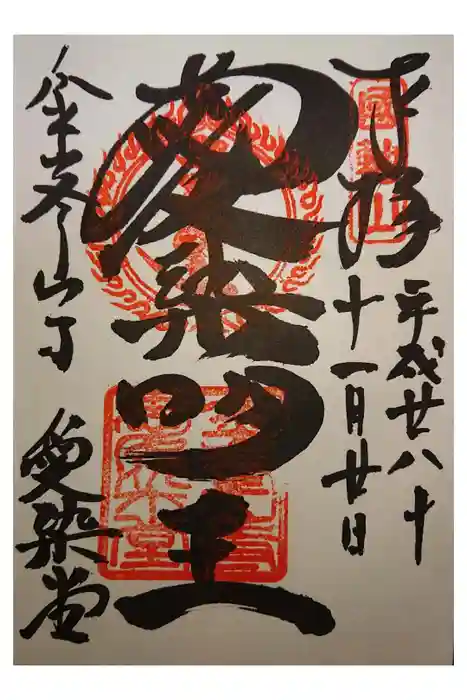 奉拝
平成廿八年
十一月廿日
愛染明王
金峯山寺 愛染堂
國軸山